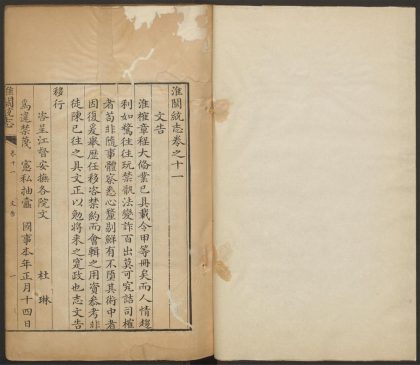 淮關統志卷之十一
文告
淮榷章程大備業已具載令甲等冊矣而人情趨
利如鶩往往玩禁骫法變詐百出莫可究詰司榷
者苟非隨事體察悉心釐剔鮮有不墮其術中者
因復爰取歷任移咨禁約而會輯之用資參考非
徒陳已往之具文正以勉將來之寔政也志文告
移行
咨呈江督安撫各院文 杜琳
為違禁蔑憲私抽虐國事本年正月十四日
淮關統志 卷十一 文告 一